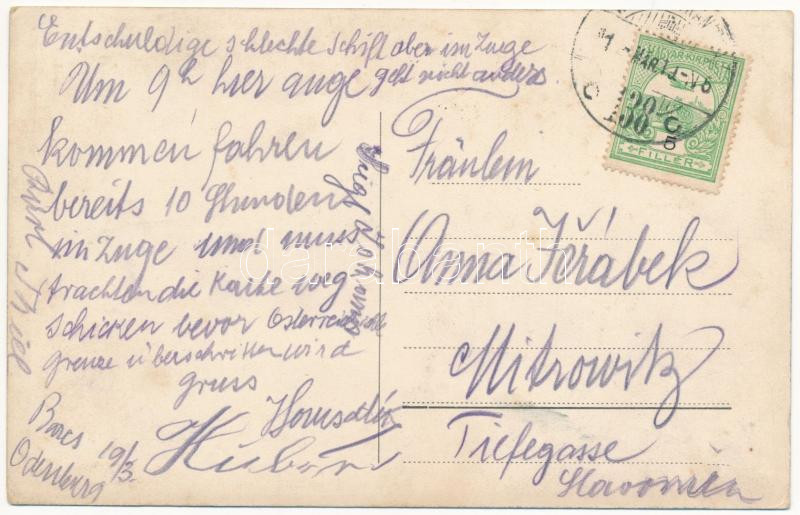 Entschuldige schlechte Schift aber im Zuge
geht nicht anders
Um 9h hier ange
kommen fahren
bereits 10 Stunden
im Zuge und muss
trachten die Karte weg
schicken bevor Österreich
grenze überschritten wird
gruss
Barcs
Odenberg 19/3.
Fräulein
Anna Jeřábek
Mitrowitz
Tiefegasse
Slavonien
MAGYAR KIR. POSTA
FILLÉR
darabanth